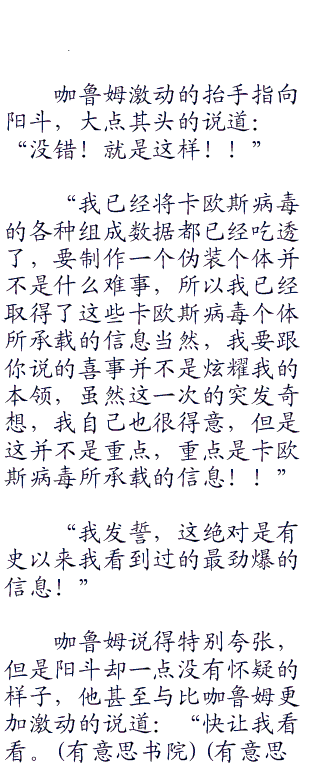 咖鲁姆激动的抬手指向
阳斗，大点其头的说道：
“没错！就是这样！！”
“我已经将卡欧斯病毒
的各种组成数据都已经吃透
了，要制作一个伪装个体并
不是什么难事，所以我已经
取得了这些卡欧斯病毒个体
所承载的信息当然，我要跟
你说的喜事并不是炫耀我的
本领，虽然这一次的突发奇
想，我自己也很得意，但是
这并不是重点，重点是卡欧
斯病毒所承载的信息！！”
“我发誓，这绝对是有
史以来我看到过的最劲爆的
信息！”
咖鲁姆说得特别夸张，
但是阳斗却一点没有怀疑的
样子，他甚至与比咖鲁姆更
加激动的说道：“快让我看
看。(有意思书院) (有意思